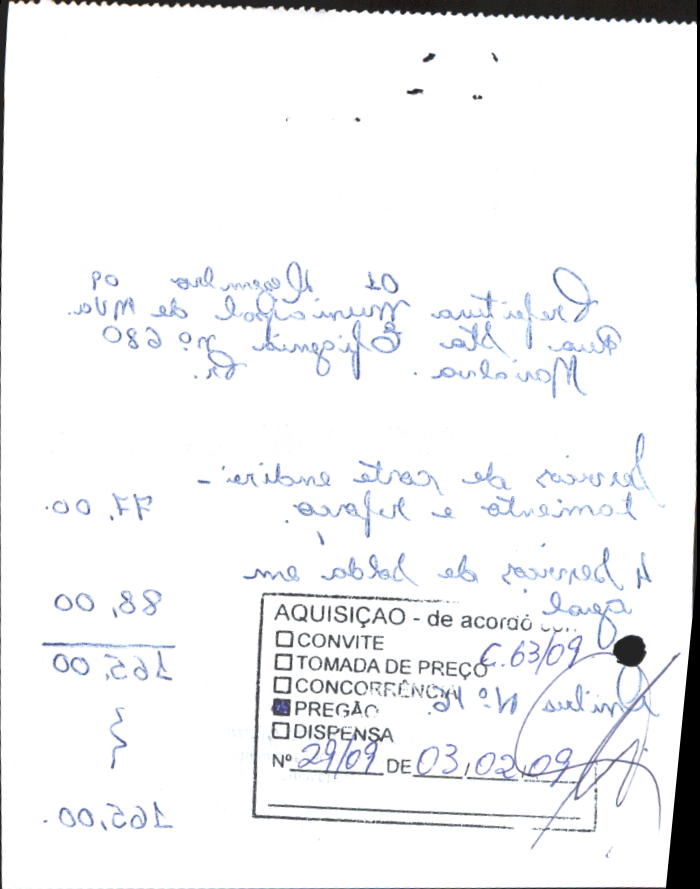 01 Dezembro 09
Prefeitura Municipal de Mva.
Rua Sta Efigenia nº 680
Marialva. Pr.
Serviços de corte endirei-
tamiento e reforço. 77,00.
4 Serviços de Solda em
88,00
165,00
Ônibus Nº 16.
165,00.
AQUISIÇÃO - de acordo com
CONVITE
C.63/09
TOMADA DE PREÇO
CONCORRÊNCIA
PREGÃO
DISPENSA
Nº 29/09 DE 03/02/09